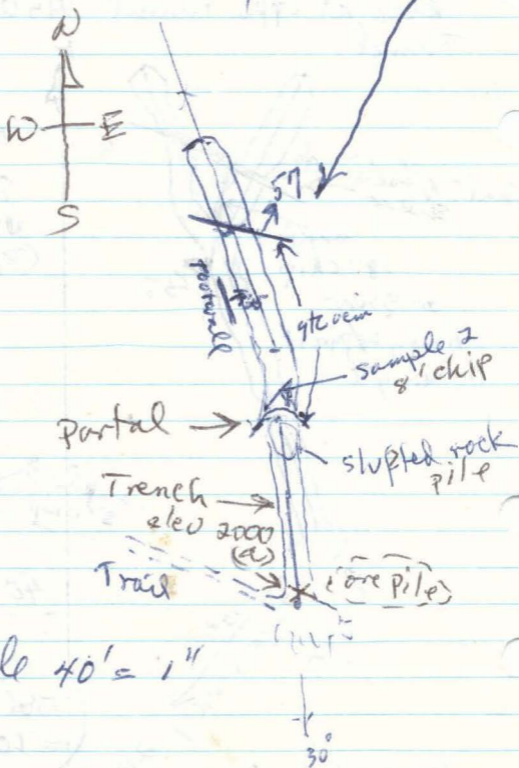 N
W E
S
57
footwall
qtz vein
sample 2
8' chip
Portal
slufted rock
pile
Trench
elev 2000
(ore pile)
Trail
40' = 1"
30°